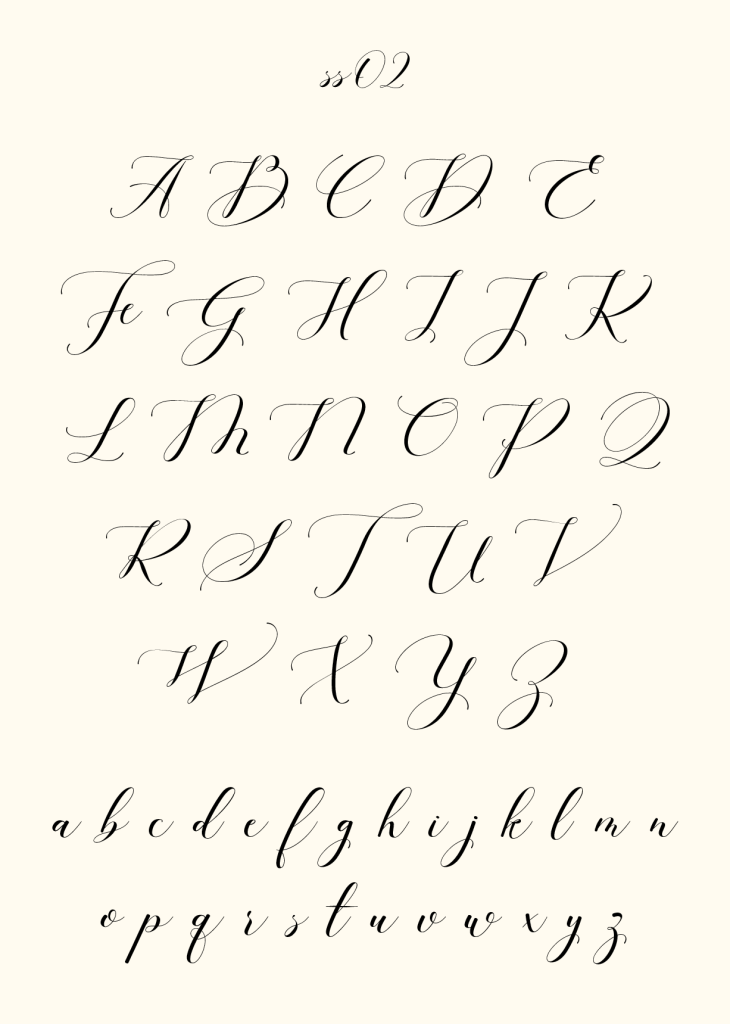 ss02
A B C D E
F G H I J K
L M N O P Q
R S T U V
W X Y Z
a b c d e f g h i j k l m n
o p q r s t u v w x y z